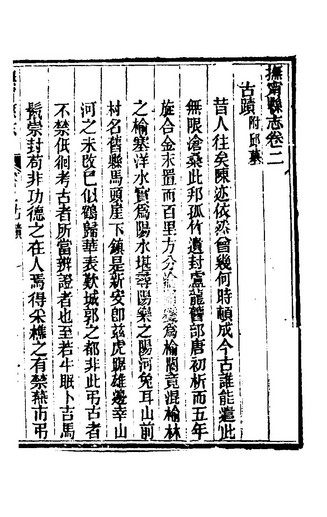 撫甯縣志卷二
古蹟附邱墓
昔人往矣陳迹依然曾幾何時頓成今古誰能遣此
無限滄桑此邦孤竹遺封盧龍舊郡唐初析而五年
旋合金末置而百里方分渝變爲榆關竟混榆林
之榆塞洋水實爲陽水堪尋陽樂之陽河兔耳山前
村名舊縣馬頭崖下鎮是新安卽茲虎踞雄邊幸山
河之未改已似鶴歸華表歎城郭之都非此弔古者
不禁低徊考古者所當辨證者也至若牛眠卜吉馬
鬛崇封苟非功德之在人焉得采樵之有禁燕市弔